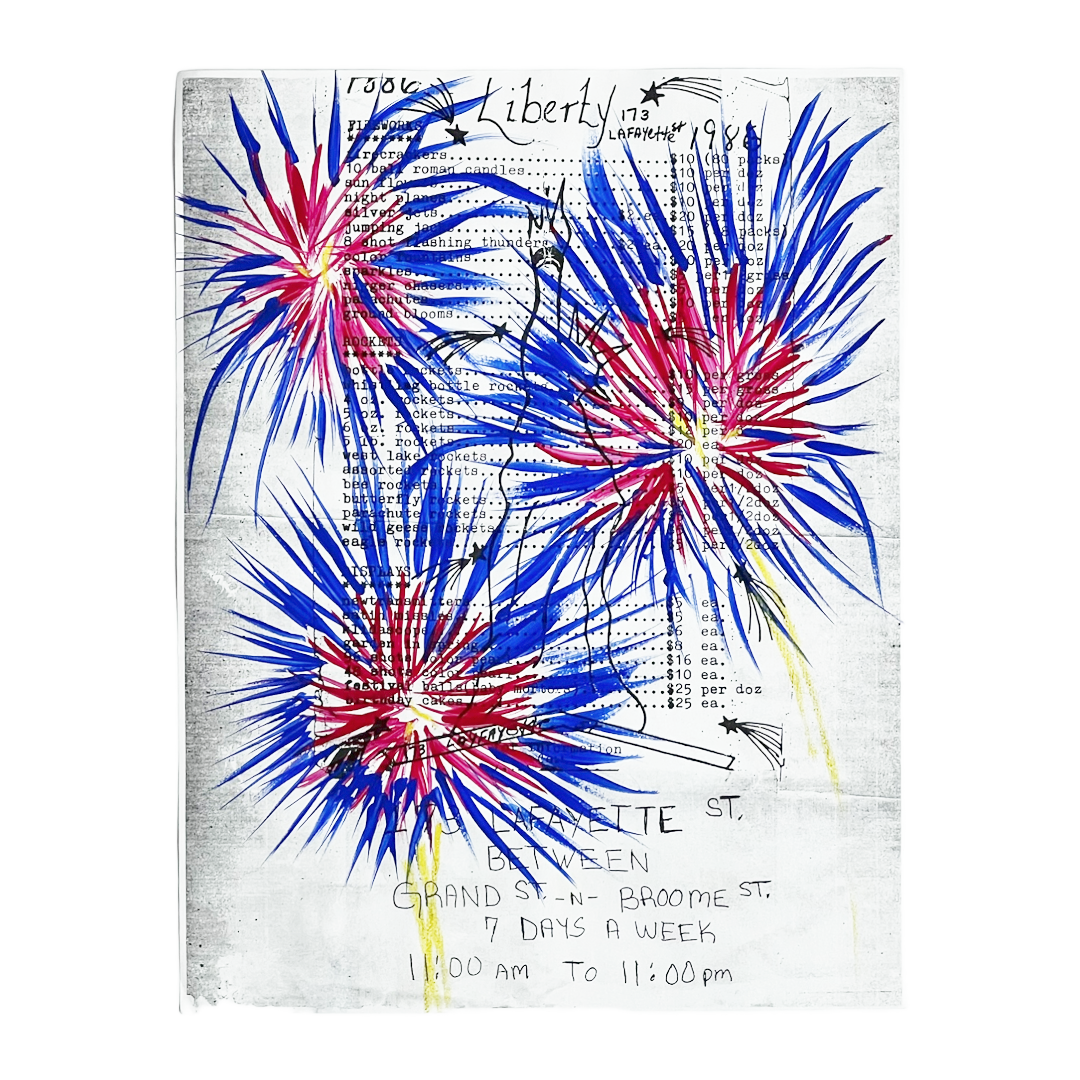 1986 Liberty 173 LAFAYette St 1986
FIREWORKS
*********
firecrackers.....$10 (80 packs)
10 ball roman candles.....$10 per doz
sun flowers.....$10 per doz
night planes.....$10 per doz
silver jets.....$2 ea. $20 per doz
jumping jacks.....$15 packs)
8 shot flashing thunders.....$2 ea. $20 per doz
color fountains..... per doz
sparkles..... per gross
nigger chasers..... per doz
parachutes..... per doz
ground blooms..... per doz
NY
LA
ROCKETS
*******
bottle rockets.....$10 per gross
whistling bottle rockets.....$15 per gross
4 oz. rockets..... per doz
5 oz. rockets.....$10 per doz
6 oz. rockets.....$12 per doz
rockets.....$20 ea.
west lake rockets.....$10 per doz
assorted rockets..... per doz
bee rockets.....$5 per1/2doz
butterfly rockets..... per1/2doz
parachute rockets..... per1/2doz
wild geese rockets..... per1/2doz
eagle rockets.....$5 per1/2doz
DISPLAYS
********
.....$5 ea.
satin missiles.....$5 ea.
.....$6 ea.
garden in spring.....$8 ea.
96 shots color pearl.....$16 ea.
48 shots color pearl.....$10 ea.
festival balls(baby mortors).....$25 per doz
birthday cakes.....$25 ea.
173 LAFAYette
information
173 LAFAYETTE ST.
BETWEEN
GRAND ST. -N- BROOME ST.
7 DAYS A WEEK
11:00 AM TO 11:00pm